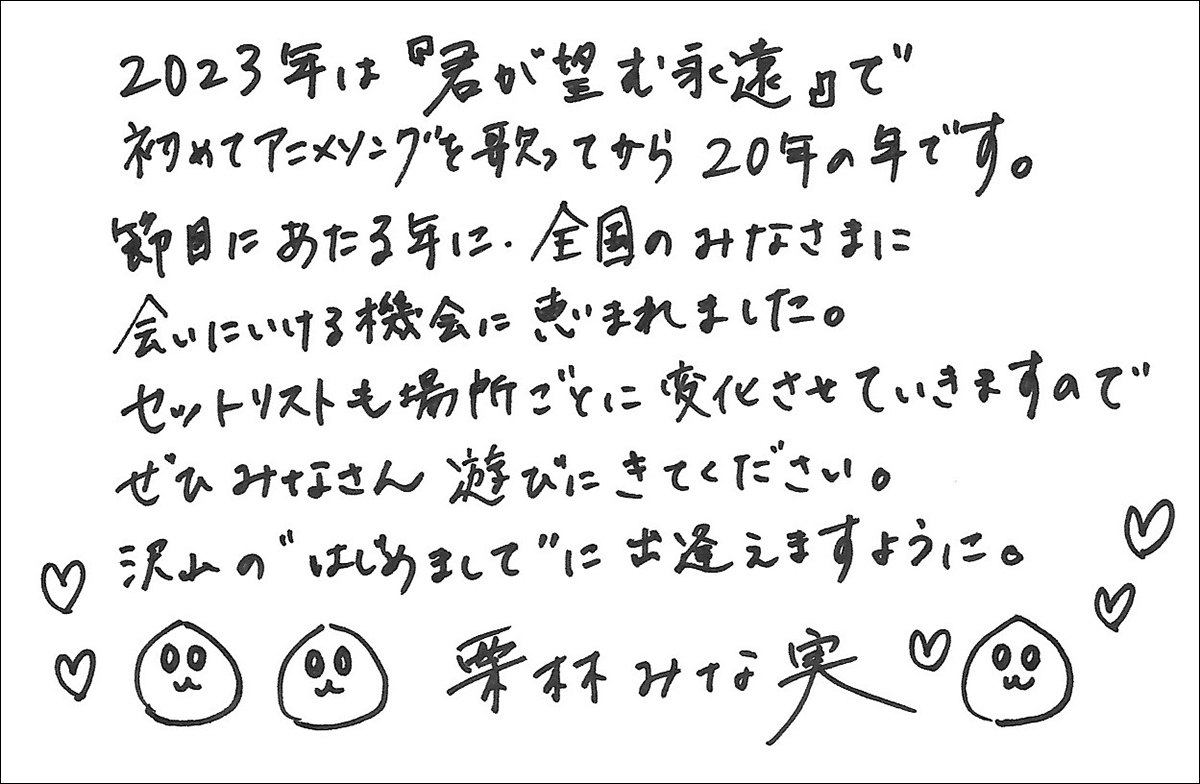 2023年は『君が望む永遠』で
初めてアニメソングを歌ってから20年の年です。
節目にあたる年に、全国のみなさまに
会いにいける機会に恵まれました。
セットリストも場所ごとに変化させていきますので
ぜひみなさん遊びにきてください。
沢山の"はじめまして"に出逢えますように。
栗林みな実